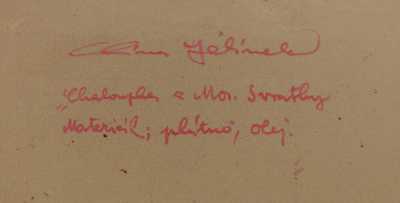 Jelínek
„Chaloupka z Mor. Svratky
Materiál; plátno, olej.